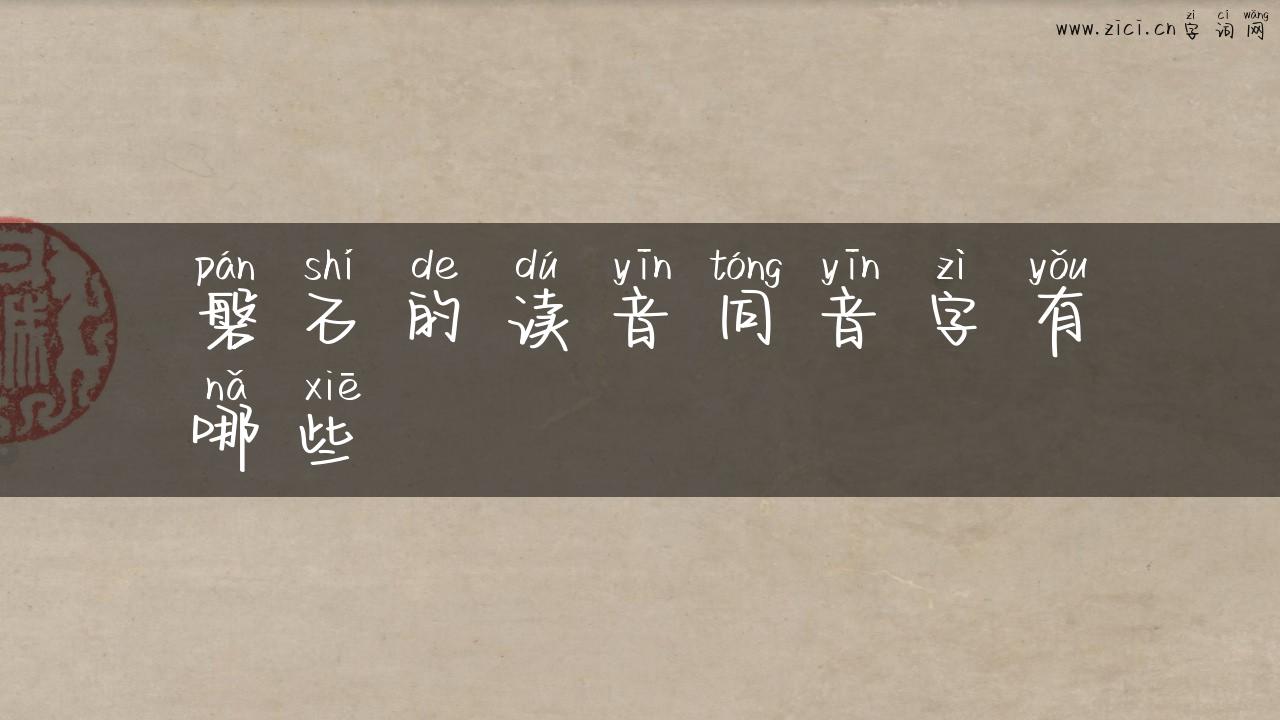 zì cí wǎng
www.zici.cn 字 词 网
pán shí de dú yīn tóng yīn zì yǒu
磐 石 的 读 音 同 音 字 有
nǎ xiē
哪 些